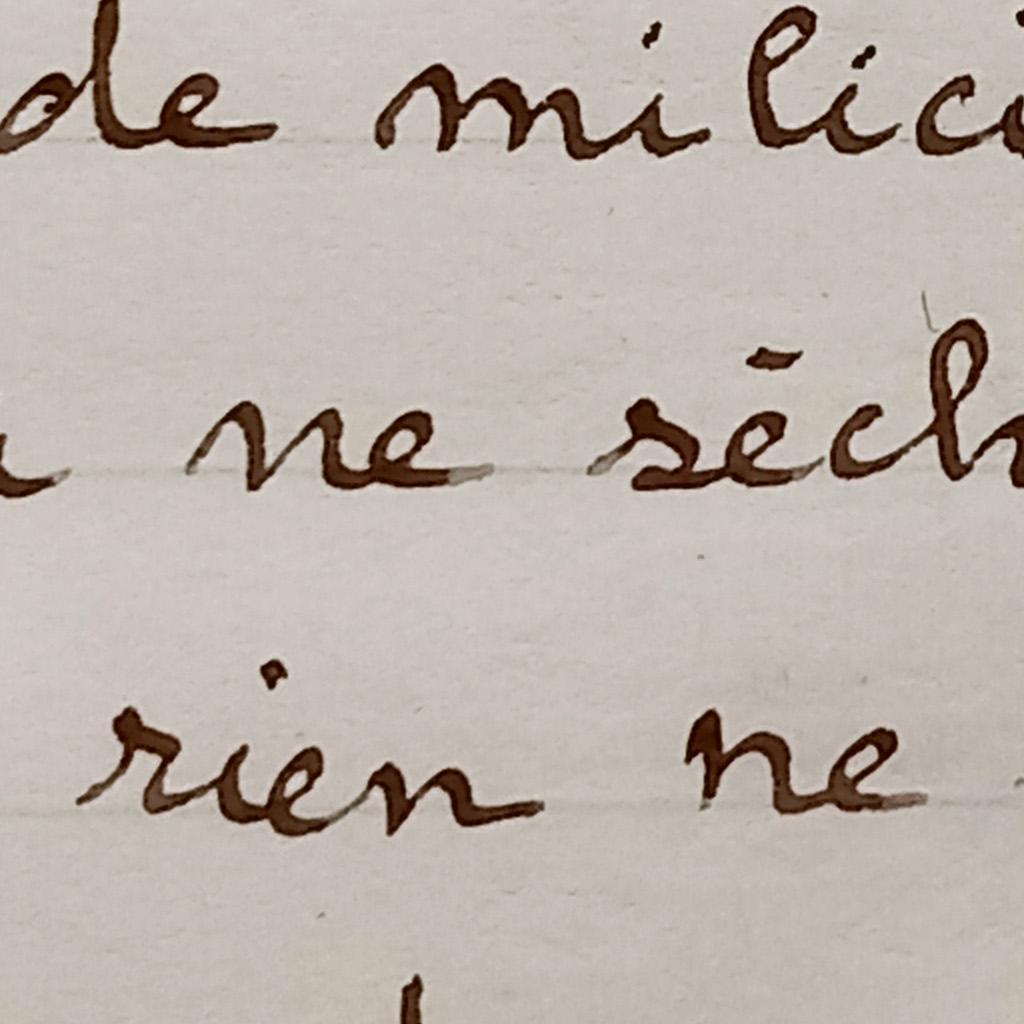 de milici
ne séch
rien ne